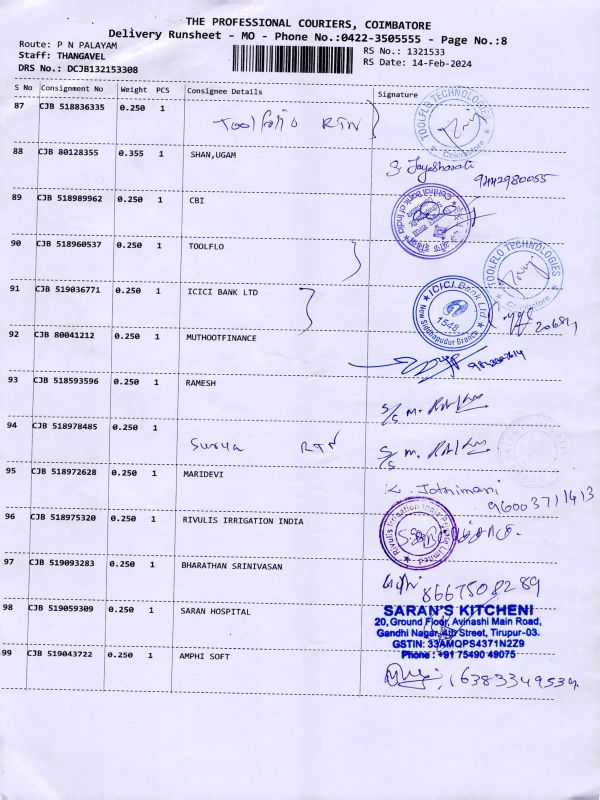 THE PROFESSIONAL COURIERS, COIMBATORE
Delivery Runsheet - MO - Phone No.:0422-3505555 - Page No.:8
Route: P N PALAYAM
Staff: THANGAVEL
DRS No.: DCJB132153308
RS No.: 1321533
RS Date: 14-Feb-2024
S No Consignment No Weight PCS Consignee Details Signature
87 CJB 518836335 0.250 1 Toolflo RTN
TOOLFLO TECHNOLOGIES
Coimbatore
88 CJB 80128355 0.355 1 SHAN,UGAM
S. Jayabharati
9442980055
89 CJB 518989962 0.250 1 CBI
Central Bank of India
90 CJB 518960537 0.250 1 TOOLFLO
TOOLFLO TECHNOLOGIES
Coimbatore
91 CJB 519036771 0.250 1 ICICI BANK LTD
ICICI Bank Ltd
1548
New Siddhapudur Branch
92 CJB 80041212 0.250 1 MUTHOOTFINANCE
93 CJB 518593596 0.250 1 RAMESH
94 CJB 518978485 0.250 1 Surya RTN
95 CJB 518972628 0.250 1 MARIDEVI
K. Jothimani
96003711413
96 CJB 518975320 0.250 1 RIVULIS IRRIGATION INDIA
Rivulis Irrigation India Private Limited
97 CJB 519093283 0.250 1 BHARATHAN SRINIVASAN
8667508289
98 CJB 519059309 0.250 1 SARAN HOSPITAL
SARAN'S KITCHENI
20, Ground Floor, Avinashi Main Road,
Gandhi Nagar, 4th Street, Tirupur-03.
GSTIN: 33AMQPS4371N2Z9
Phone : +91 75490 49075
99 CJB 519043722 0.250 1 AMPHI SOFT